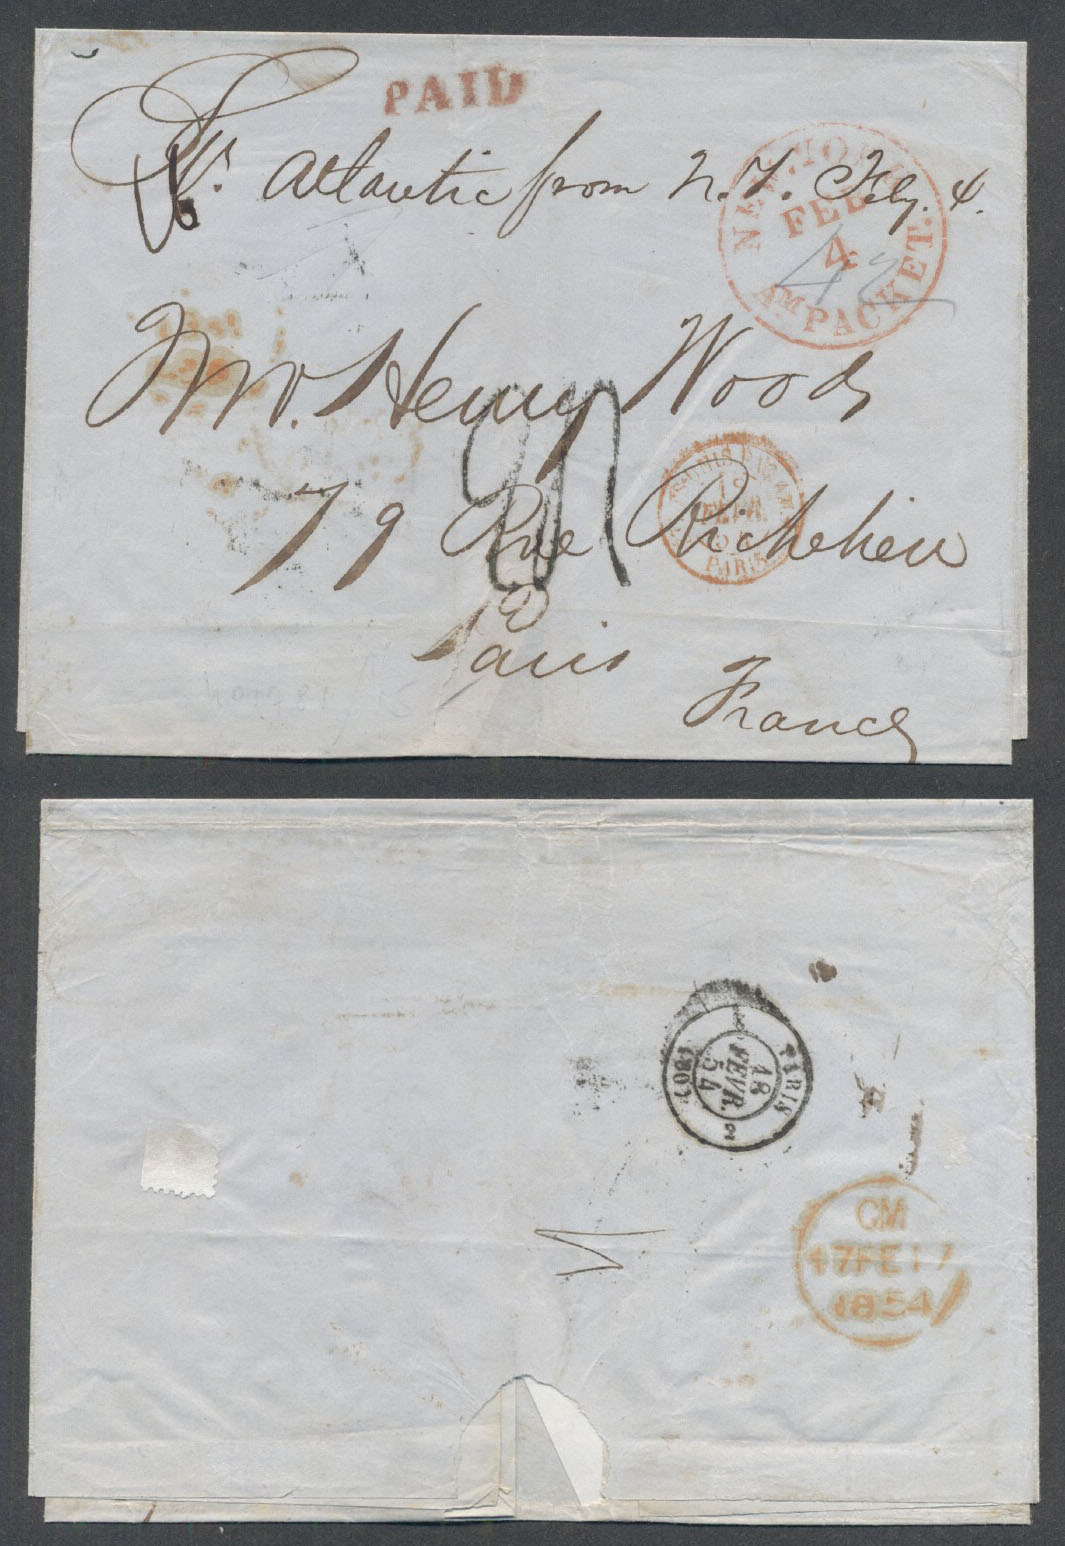 PAID
Pr. Atlantic from N.Y. Feby. 4.
NEW YORK
FEB
4
AM PACKET.
42
Mr. Henry Woods
79 Rue Richelieu
Paris
France
FEVR.
PARIS
PARIS
18
FEVR.
54
(60)
CM
17 FE 17
1854